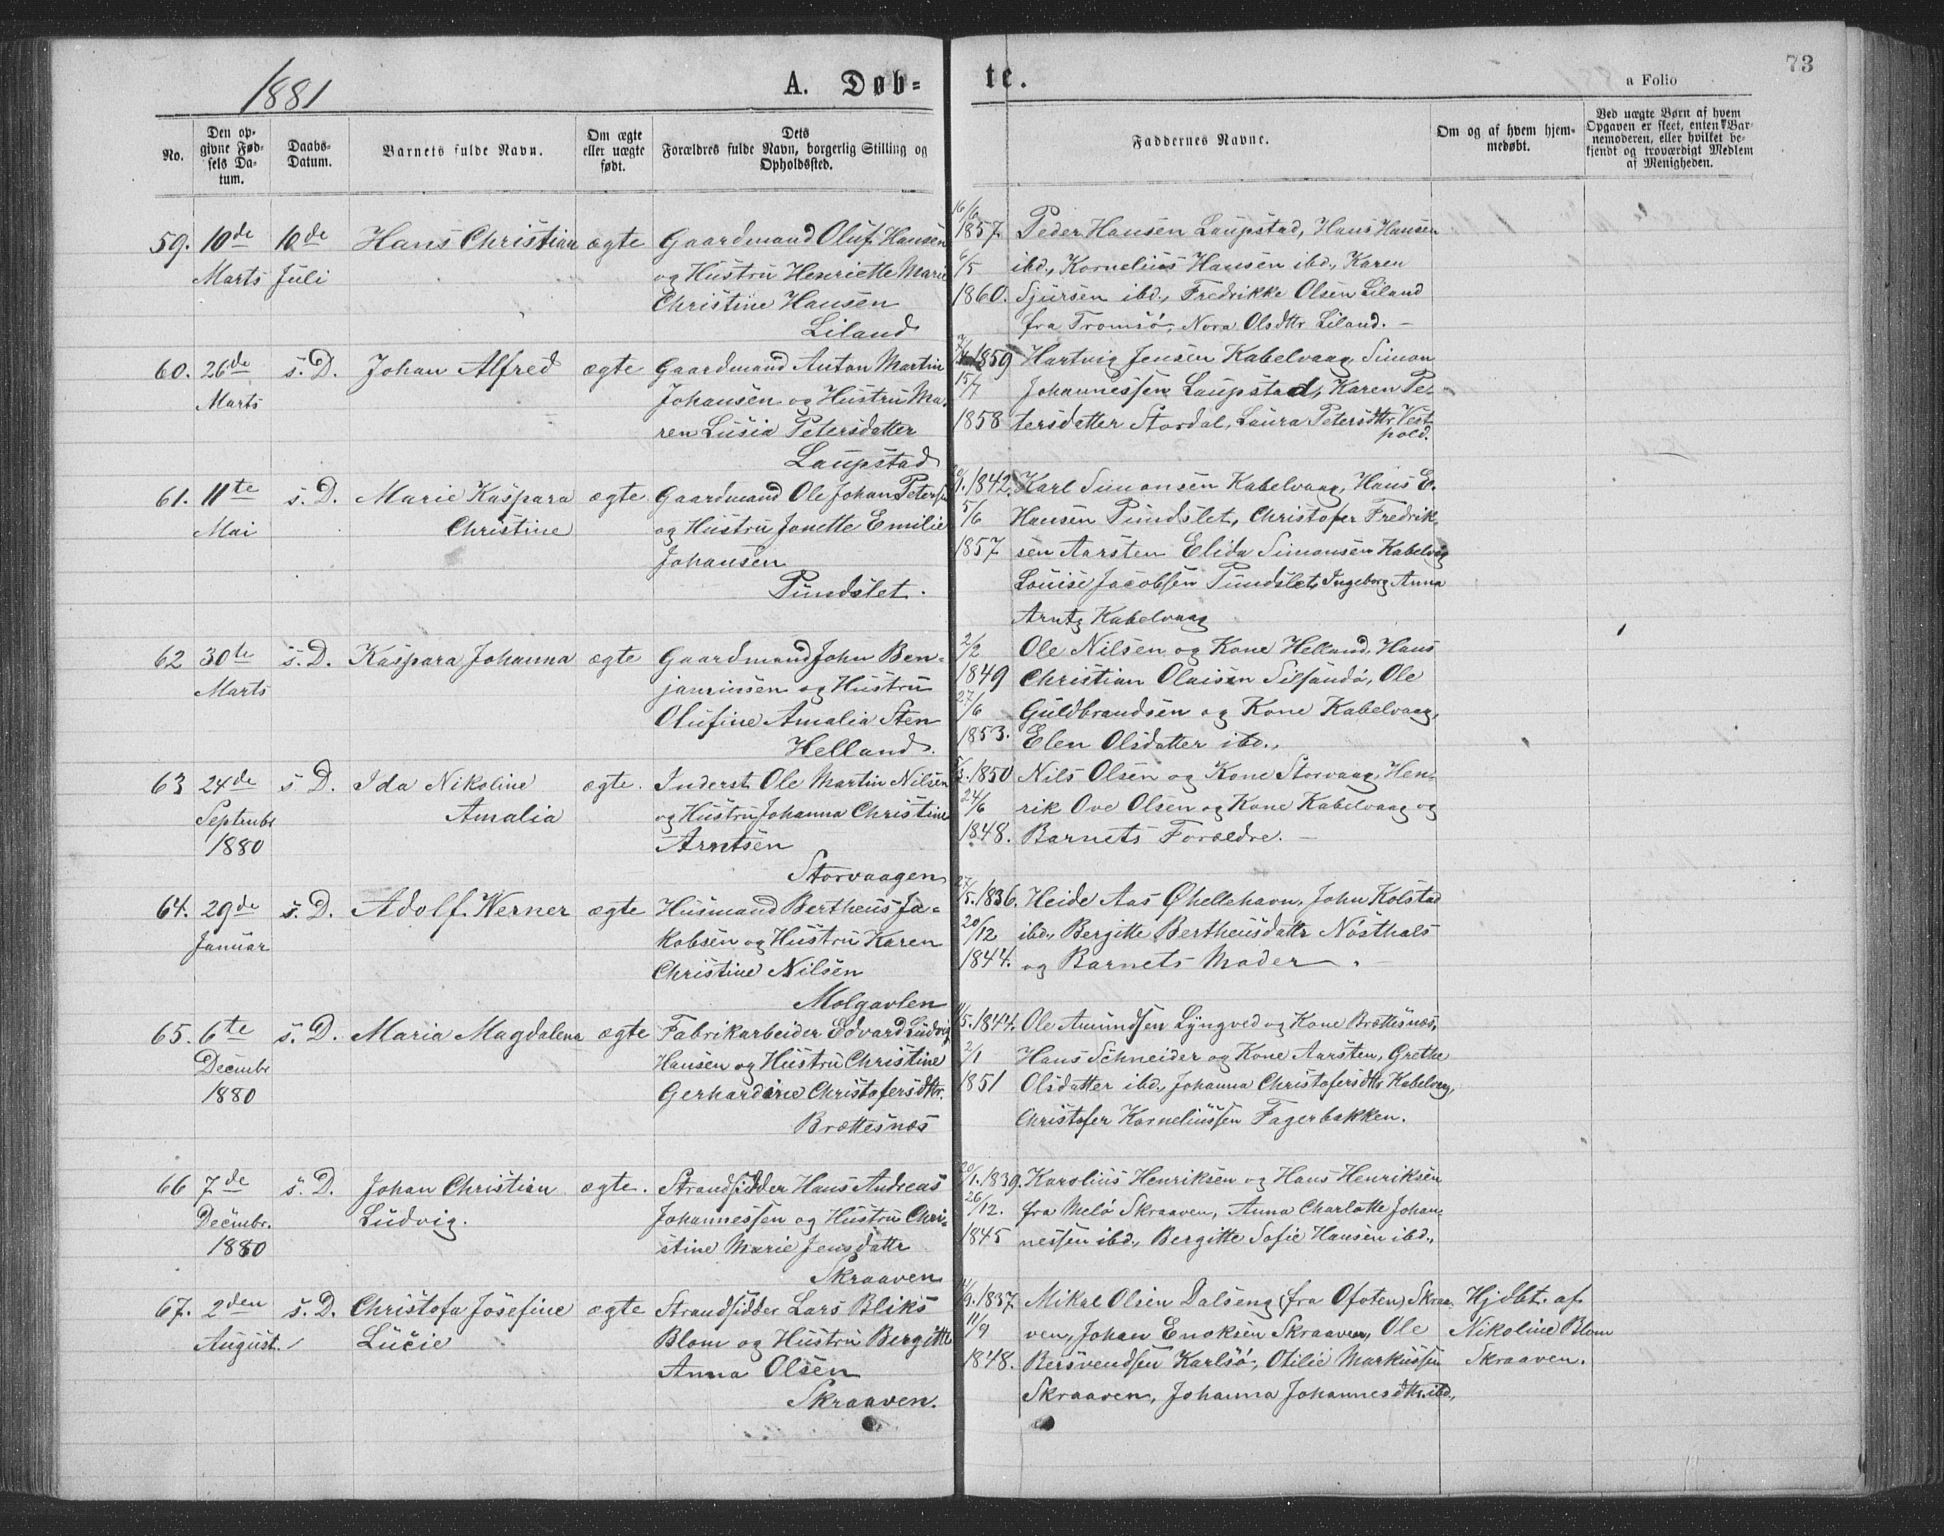 1881
A. Døb-
te.
73
a Folio
No.
Den op-
givne Fød-
sels Da-
tum.
Daabs-
Datum.
Barnets fulde Navn.
Om ægte
eller uægte
født.
Dets
Forældres fulde Navn, borgerlig Stilling og
Opholdssted.
Faddernes Navne.
Om og af hvem hjem-
medøbt.
Ved uægte Børn af hvem
Opgaven er skeet, enten Bar-
nemoderen, eller hvilket be-
kjendt og troværdigt Medlem
af Menigheden.
59. 10de 10de Hans Christian ægte Gaardmand Oluf Hansen
Marts Juli og Hustru Henriette Marie
Christine Hansen
Liland
16/6
1857. Peder Hansen Laupstad, Hans Hansen
6/5 ibd., Kornelius Hansen ibd., Karen
1860. Sjursen ibd., Fredrikke Olsen Liland
fra Tromsø, Nora Olsdttr Liland. —
60. 26de s. D. Johan Alfred ægte Gaardmand Anton Martin
Marts Johansen og Hustru Ma-
ren Lusia Petersdatter
Laupstad
1859 Hartvig Jensen Kabelvaag, Simon
15/7 Johannessen Laupstad, Karen Pe-
1858 tersdatter Stordal, Laura Petersdttr Vest-
pold.
61. 11te s. D. Marie Kaspara ægte. Gaardmand Ole Johan Petersen
Mai Christine og Hustru Jonette Emilie
Johansen
Pundslet.
1842. Karl Simonsen Kabelvaag, Hans E.
5/6 Hansen Pundslet, Christofer Fredrik-
1857 sen Aarsten Elida Simonsen Kabelvag
Louise Jacobsen Pundslet, Ingeborg Anna
Arntz Kabelvaag
62 30te s. D. Kaspara Johanna ægte Gaardmand John Ben-
Marts jaminsen og Hustru
Olufine Amalia Sten
Helland.
2/2 Ole Nilsen og Kone Helland, Hans
1849 Christian Olaisen Silsandø, Ole
27/6 Guldbrandsen og Kone Kabelvaag,
1853. Elen Olsdatter ibd.,
63 24de s. D. Ida Nikoline ægte. Inderst Ole Martin Nilsen
Septembr Amalia og Hustru Johanna Christine
1880 Arntsen
Storvaagen
1850 Nils Olsen og Kone Storvaag, Hen-
24/6 rik Ove Olsen og Kone Kabelvaag og
1848. Barnets Forældre. —
64. 29de s. D. Adolf Werner ægte Husmand Bertheus Ja-
Januar kobsen og Hustru Karen
Christine Nilsen
Molgavlen
27/5. 1836. Heide Aas Øhellehavn, John Kolstad
20/12 ibd., Bergitte Bertheusdattr Nösthals
1844. og Barnets Moder. —
65. 6te s. D. Maria Magdalena ægte Fabrikarbeider Edvard Ludvig
Decembr Hansen og Hustru Christine
1880 Gerhardine Christofersdttr.
Brettesnæs
1844. Ole Amundsen Lyngved og Kone Brettesnæs,
2/1 Hans Schneider og Kone Aarsten, Grethe
1851 Olsdatter ibd., Johanna Christofersdttr Kabelvag,
Christofer Korneliussen Fagerbakken.
66 7de s. D. Johan Christian ægte. Strandsidder Hans Andreas
Decmbr. Ludvig. Johannessen og Hustru Chri-
1880 stine Marie Jensdattr
Skraaven
20/1. 1839. Karolius Henriksen og Hans Henriksen
26/12. fra Melø Skraaven, Anna Charlotte Johan-
1845 nessen ibd., Bergitte Sofie Hansen ibd.,
67. 2den s. D. Christofa Josefine ægte Strandsidder Lars Bliks
August. Lucie Blom og Hustru Bergitte
Anna Olsen
Skraaven.
1837. Mikal Olsen Dalseng (fra Ofoten) Skraa- Hjdbt. af
11/9 ven, Johan Enoksen Skraaven, Ole Nikoline Blom
1848. Bersvendsen Karlsø, Otilie Markussen Skraaven.
Skraaven, Johanna Johannesdttr ibd.,